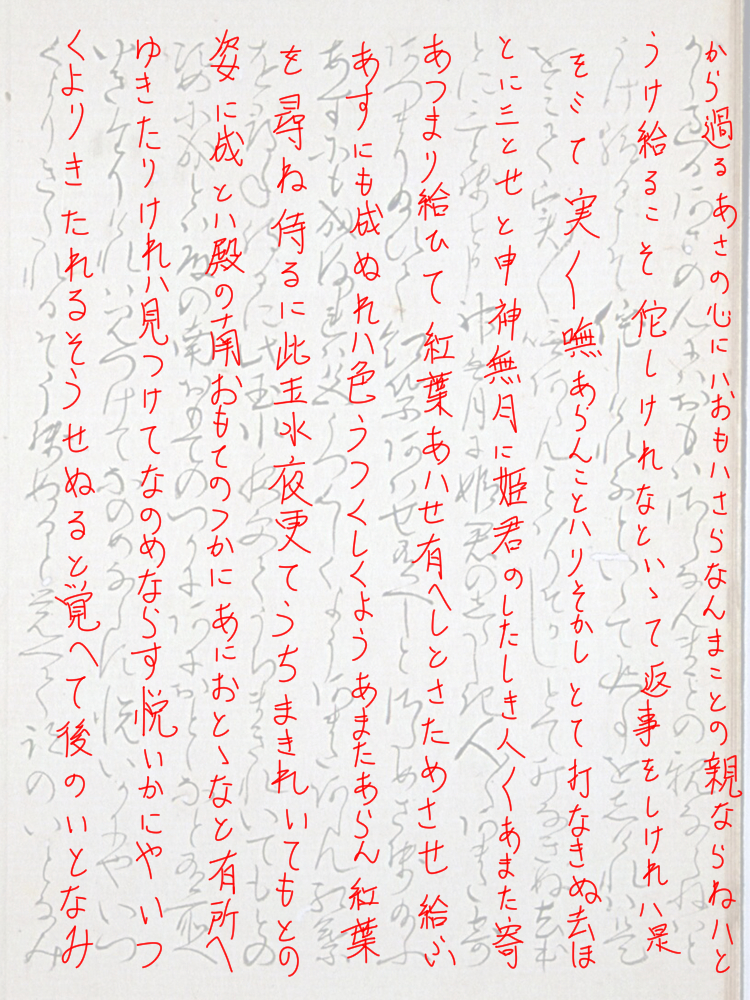 から過るあさの心にハおもハさらなんまことの親ならねハと
うけ給るこそ佗しけれなといゝて返事をしけれハ是
をミて実〱嘸あらんことハリそかしとて打なきぬ去ほ
とに三とせと申神無月に姫君のしたしき人〱あまた寄
あつまり給ひて紅葉あハせ有へしとさためさせ給ふ
あすにも成ぬれハ色うつくしくようあまたあらん紅葉
を尋ね侍るに此玉水夜更てうちまきれいてもとの
姿に成とハ殿の南おもてのつかにあにおとゝなと有所へ
ゆきたりけれハ見つけてなのめならす悦いかにやいつ
くよりきたれるそうせぬると覚へて後のいとなみ